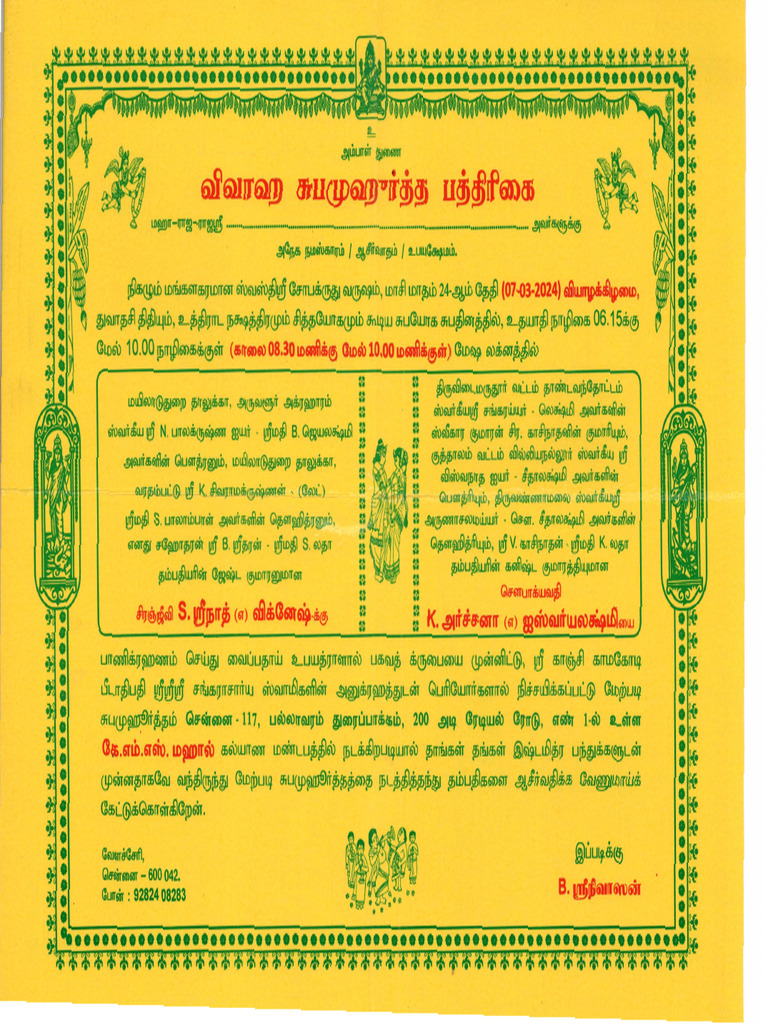 உ
அம்பாள் துணை
விவாஹ சுபமுஹூர்த்த பத்திரிகை
மஹா-ராஜ-ராஜஸ்ரீ ............................................................ அவர்களுக்கு
அநேக நமஸ்காரம் / ஆசீர்வாதம் / உபயக்ஷேமம்.
நிகழும் மங்களகரமான ஸ்வஸ்திஸ்ரீ சோபக்ருது வருஷம், மாசி மாதம் 24-ஆம் தேதி (07-03-2024) வியாழக்கிழமை,
துவாதசி திதியும், உத்திராட நக்ஷத்திரமும் சித்தயோகமும் கூடிய சுபயோக சுபதினத்தில், உதயாதி நாழிகை 06.15க்கு
மேல் 10.00 நாழிகைக்குள் (காலை 08.30 மணிக்கு மேல் 10.00 மணிக்குள்) மேஷ லக்னத்தில்
மயிலாடுதுறை தாலுக்கா, அருவளூர் அக்ரஹாரம்
ஸ்வர்கீய ஸ்ரீ N. பாலக்ருஷ்ண ஐயர் - ஸ்ரீமதி B. ஜெயலக்ஷ்மி
அவர்களின் பௌத்ரனும், மயிலாடுதுறை தாலுக்கா,
வரதம்பட்டு ஸ்ரீ K. சிவராமக்ருஷ்ணன் - (லேட்)
ஸ்ரீமதி S. பாலாம்பாள் அவர்களின் தௌஹித்ரனும்,
எனது சஹோதரன் ஸ்ரீ B. ஸ்ரீதரன் - ஸ்ரீமதி S. லதா
தம்பதியரின் ஜேஷ்ட குமாரனுமான
சிரஞ்ஜீவி S. ஸ்ரீநாத் (எ) விக்னேஷ்-க்கு
திருவிடைமருதூர் வட்டம் தாண்டவந்தோட்டம்
ஸ்வர்கீயஸ்ரீ சங்கரய்யர் - லெக்ஷ்மி அவர்களின்
ஸ்வீகார குமாரன் சிர. காசிநாதனின் குமாரியும்,
குத்தாலம் வட்டம் வில்லியநல்லூர் ஸ்வர்கீய ஸ்ரீ
விஸ்வநாத ஐயர் - சீதாலக்ஷ்மி அவர்களின்
பௌத்ரியும், திருவண்ணாமலை ஸ்வர்கீயஸ்ரீ
அருணாசலமய்யர் - சௌ. சீதாலக்ஷ்மி அவர்களின்
தௌஹித்ரியும், ஸ்ரீ V. காசிநாதன் - ஸ்ரீமதி K. லதா
தம்பதியரின் கனிஷ்ட குமாரத்தியுமான
சௌபாக்யவதி
K. அர்ச்சனா (எ) ஐஸ்வர்யலக்ஷ்மியை
பாணிக்ரஹணம் செய்து வைப்பதாய் உபயத்ராளால் பகவத் க்ருபையை முன்னிட்டு, ஸ்ரீ காஞ்சி காமகோடி
பீடாதிபதி ஸ்ரீஸ்ரீஸ்ரீ சங்கராசார்ய ஸ்வாமிகளின் அனுக்ரஹத்துடன் பெரியோர்களால் நிச்சயிக்கப்பட்டு மேற்படி
சுபமுஹூர்த்தம் சென்னை - 117, பல்லாவரம் துரைப்பாக்கம், 200 அடி ரேடியல் ரோடு, எண் 1-ல் உள்ள
கே.எம்.எஸ். மஹால் கல்யாண மண்டபத்தில் நடக்கிறபடியால் தாங்கள் தங்கள் இஷ்டமித்ர பந்துக்களுடன்
முன்னதாகவே வந்திருந்து மேற்படி சுபமுஹூர்த்தத்தை நடத்தித்தந்து தம்பதிகளை ஆசீர்வதிக்க வேணுமாய்க்
கேட்டுக்கொள்கிறேன்.
வேளச்சேரி,
சென்னை – 600 042.
போன் : 92824 08283
இப்படிக்கு
B. ஸ்ரீநிவாஸன்